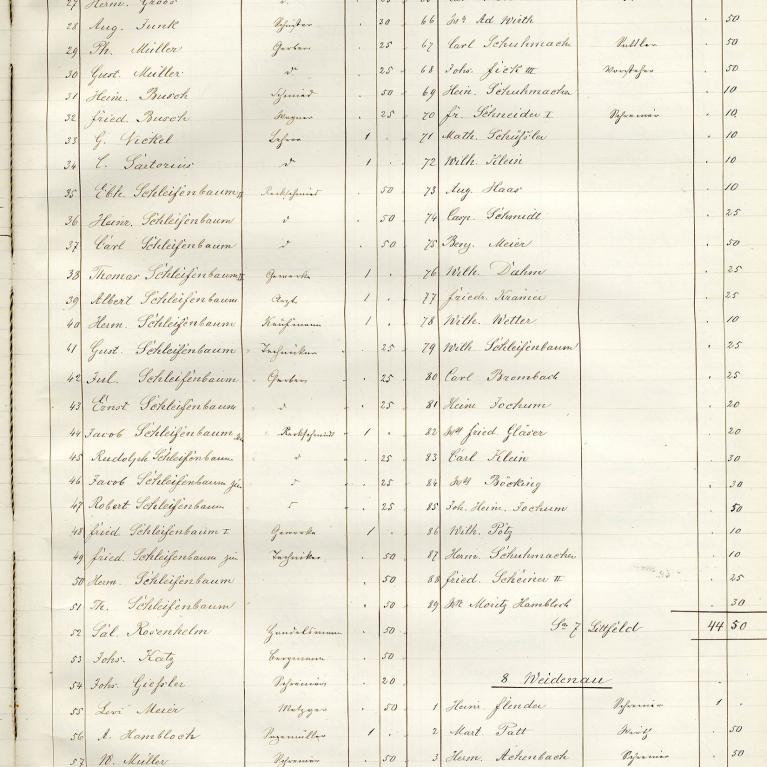 27 Herm. Groos d.
28 Aug. Junk Schuster . 20
29 Ph. Müller Gerber . 25
30 Gust. Müller d . 25
31 Heinr. Busch Schmied . 50
32 fried. Busch Wagner . 25
33 G. Nickel Lehrer 1 .
34 C. Sartorius d 1 .
35 Ebh. Schleifenbaum II Reckschmied . 50
36 Heinr. Schleifenbaum d . 50
37 Carl Schleifenbaum d . 50
38 Thomas Schleifenbaum II Gewerke 1 .
39 Albert Schleifenbaum Arzt 1 .
40 Herm. Schleifenbaum Kaufmann 1 .
41 Gust. Schleifenbaum Techniker . 25
42 Jul. Schleifenbaum Gerber . 25
43 Ernst Schleifenbaum d . 25
44 Jacob Schleifenbaum Reckschmied 1 .
45 Rudolph Schleifenbaum d . 25
46 Jacob Schleifenbaum jun . 25
47 Robert Schleifenbaum . 25
48 fried. Schleifenbaum I Gewerke 1 .
49 fried. Schleifenbaum jun Techniker . 50
50 Herm. Schleifenbaum . 50
51 Th. Schleifenbaum . 50
52 Sal. Rosenhelm Handelsmann . 50
53 Johs. Katz Bergmann . 50
54 Johs. Giessler Schreiner . 20
55 Levi Meier Metzger . 50
56 A. Hambloch Sagemüller 1 .
57 W. Müller Schreiner . 50
66 Ww Ad Wirth . 50
67 Carl Schuhmacher Sattler . 50
68 Johs. fick III Vorsteher . 50
69 Hein. Schuhmacher . 10
70 fr. Schneider I Schreiner . 10
71 Math. Schüssler . 10
72 Wilh. Klein . 10
73 Aug. Haas . 10
74 Casp. Schmidt . 25
75 Benj. Meier . 50
76 Wilh. Dahm . 25
77 friedr. Krämer . 25
78 Wilh. Wetter . 10
79 Wilh Schleifenbaum . 25
80 Carl Brombach . 25
81 Heinr Jochum . 20
82 Ww fried. Gläser . 20
83 Carl Klein . 30
84 Ww Böcking . 30
85 Joh. Heinr. Jochum . 50
86 Wilh. Pötz . 10
87 Herm. Schuhmacher . 10
88 fried. Scheiner II . 25
89 Ww Moritz Hambloch . 30
Sa 7 Littfeld 44 50
8 Weidenau
1 Heinr. flender Schreiner 1 .
2 Mart. Patt Wirth . 50
3 Herm. Achenbach Schreiner . 50